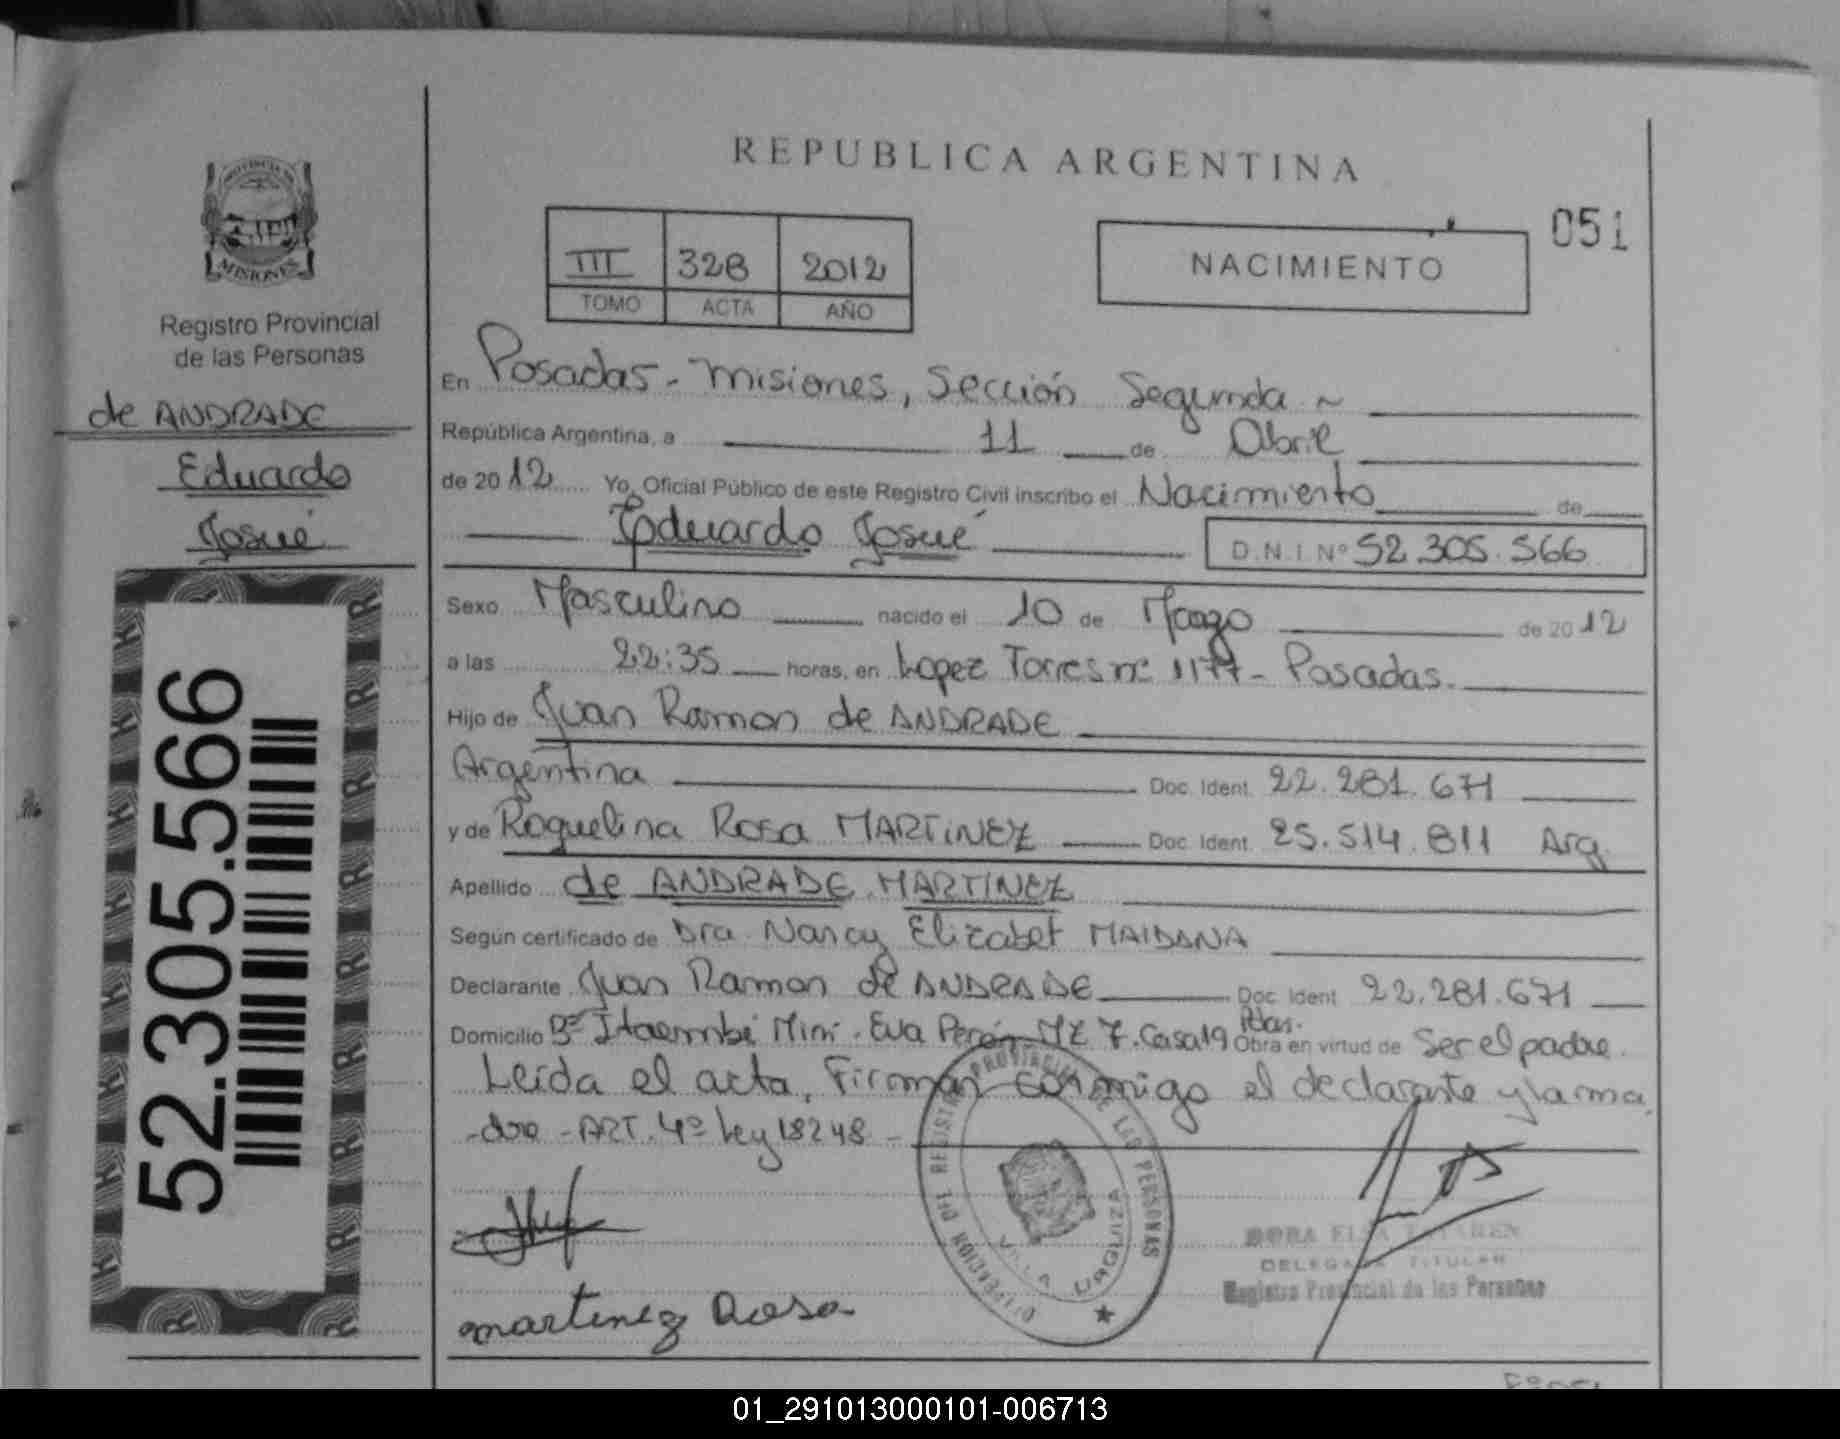 REPUBLICA ARGENTINA
PROVINCIA DE
MISIONES
Registro Provincial
de las Personas
de ANDRADE
Eduardo
Josué
52.305.566
III 328 2012
TOMO ACTA AÑO
NACIMIENTO
051
En Posadas - Misiones, Sección Segunda ~
República Argentina, a 11 de Abril
de 2012 Yo, Oficial Público de este Registro Civil inscribo el Nacimiento de
Eduardo Josué D.N.I. Nº 52.305.566
Sexo Masculino nacido el 10 de Marzo de 2012
a las 22:35 horas, en Lopez Torres nº 1177 - Posadas.
Hijo de Juan Ramon de ANDRADE
Argentina Doc. Ident. 22.281.671
y de Roquelina Rosa MARTINEZ Doc. Ident. 25.514.811 Arg.
Apellido de ANDRADE MARTINEZ
Según certificado de Dra. Nancy Elizabet MAIDANA
Declarante Juan Ramon de ANDRADE Doc. Ident. 22.281.671
Domicilio Bº Itaembé Mini - Eva Perón - MZ 7. Casa 19 Pdas. Obra en virtud de Ser el padre.
Leida el acta, Firman conmigo el declarante y la ma
-dre - ART. 4º Ley 18248 -
DELEGACION DEL REGISTRO PROVINCIAL DE LAS PERSONAS
VILLA URQUIZA
martinez Rosa
DORA ELSA
DELEGADA TITULAR
Registro Provincial de las Personas
01_291013000101-006713